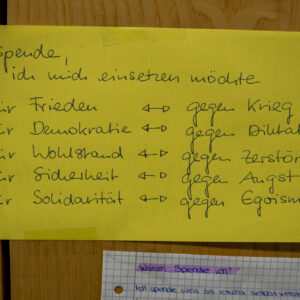 Spende,
ich mich einsetzen möchte
für Frieden ↔ gegen Krieg
für Demokratie ↔ gegen Diktat
für Wohlstand ↔ gegen Zerstör
für Sicherheit ↔ gegen Angst
für Solidarität ↔ gegen Egoism
Warum Spende ich?
Ich spende weil es